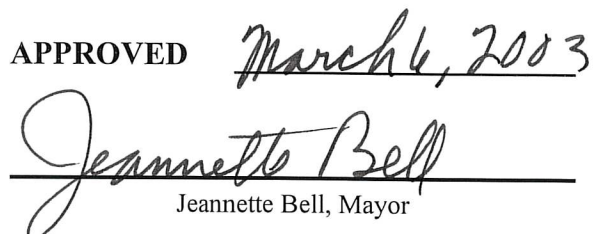 APPROVED March 6, 2003
Jeannette Bell
Jeannette Bell, Mayor